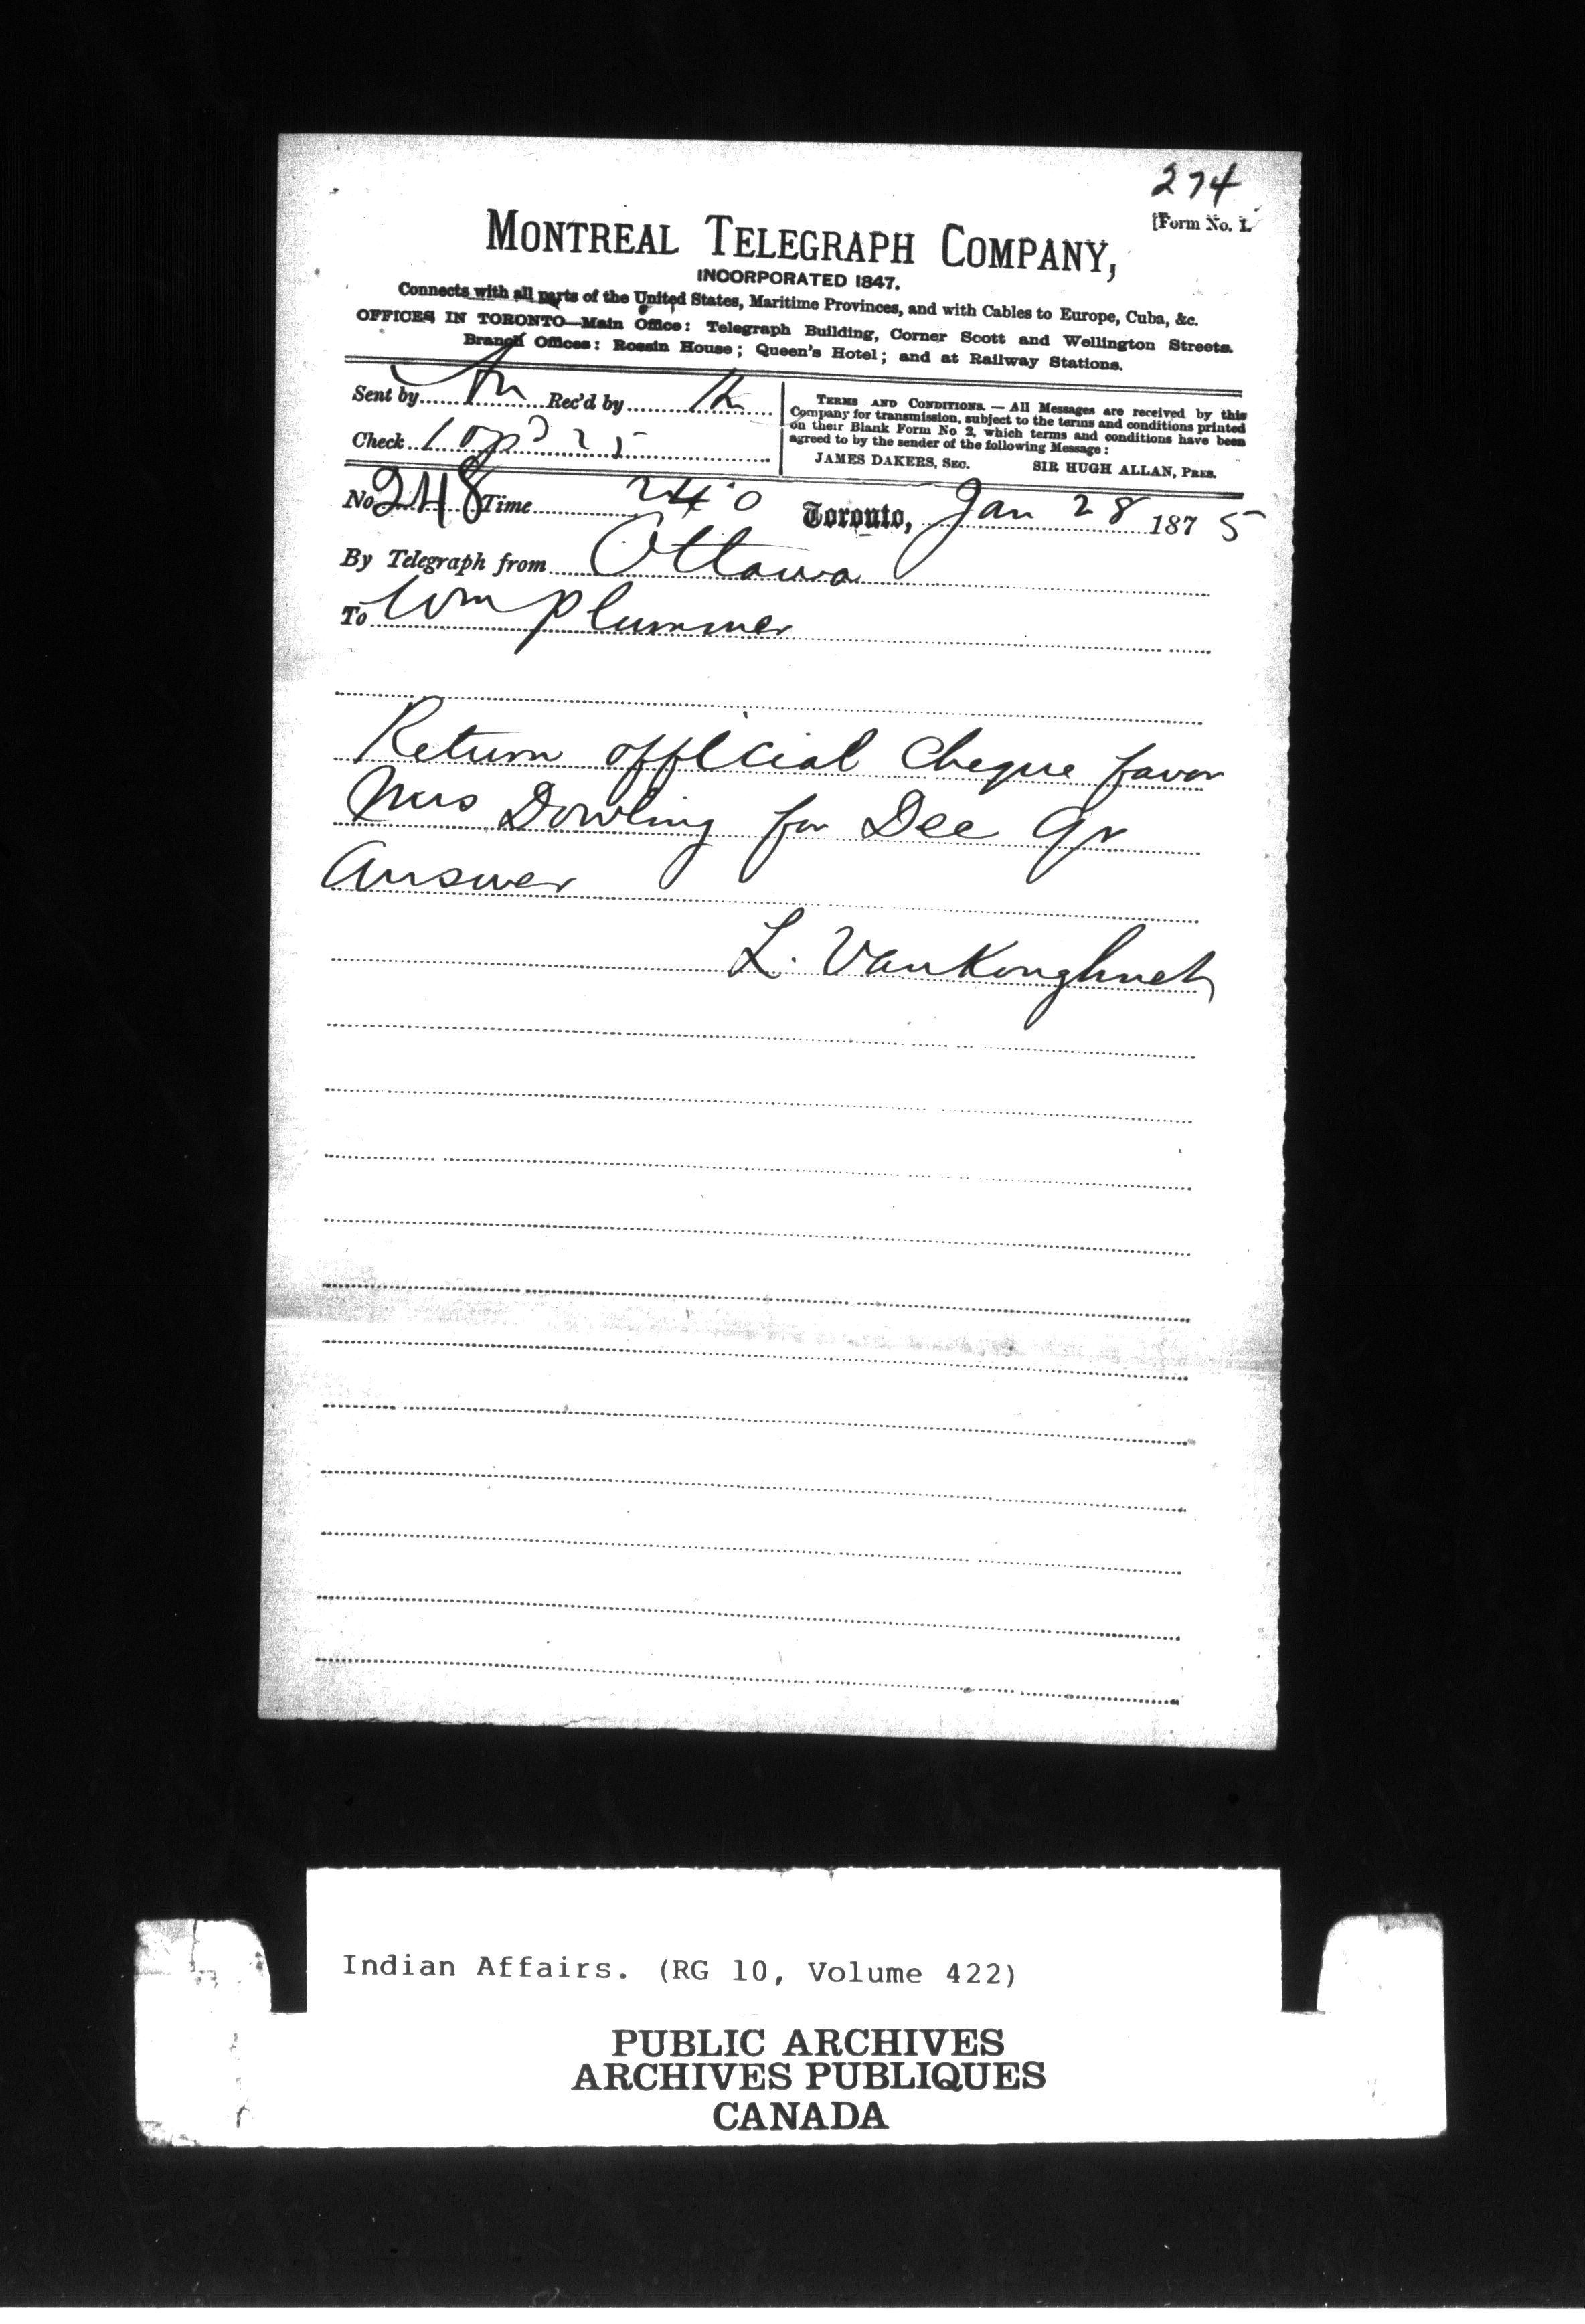 274
[Form No. 1.
MONTREAL TELEGRAPH COMPANY,
INCORPORATED 1847.
Connects with all parts of the United States, Maritime Provinces, and with Cables to Europe, Cuba, &c.
OFFICES IN TORONTO—Main Office: Telegraph Building, Corner Scott and Wellington Streets.
Branch Offices: Rossin House; Queen's Hotel; and at Railway Stations.
Sent by Rec'd by
Check 25
TERMS AND CONDITIONS. — All Messages are received by this
Company for transmission, subject to the terms and conditions printed
on their Blank Form No 2, which terms and conditions have been
agreed to by the sender of the following Message:
JAMES DAKERS, SEC. SIR HUGH ALLAN, PRES.
No 248 Time 240 Toronto, Jan 28 1875
By Telegraph from Ottawa
To Wm Plummer
Return official cheque favor
Mrs Dowling for Dec qr
Answer
L. VanKoughnet
Indian Affairs. (RG 10, Volume 422)
PUBLIC ARCHIVES
ARCHIVES PUBLIQUES
CANADA